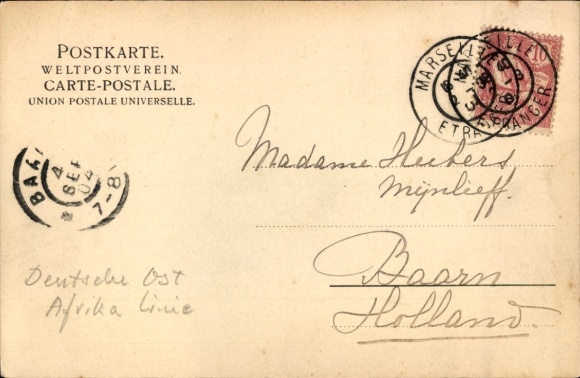 POSTKARTE.
WELTPOSTVEREIN.
CARTE-POSTALE.
UNION POSTALE UNIVERSELLE.
MARSEILLE
ETRANGER
10
BAA
4
SEP
04
7-8
Madame Hubers
Mijnlieff.
Baarn
Holland.
Deutsche Ost
Afrika Linie